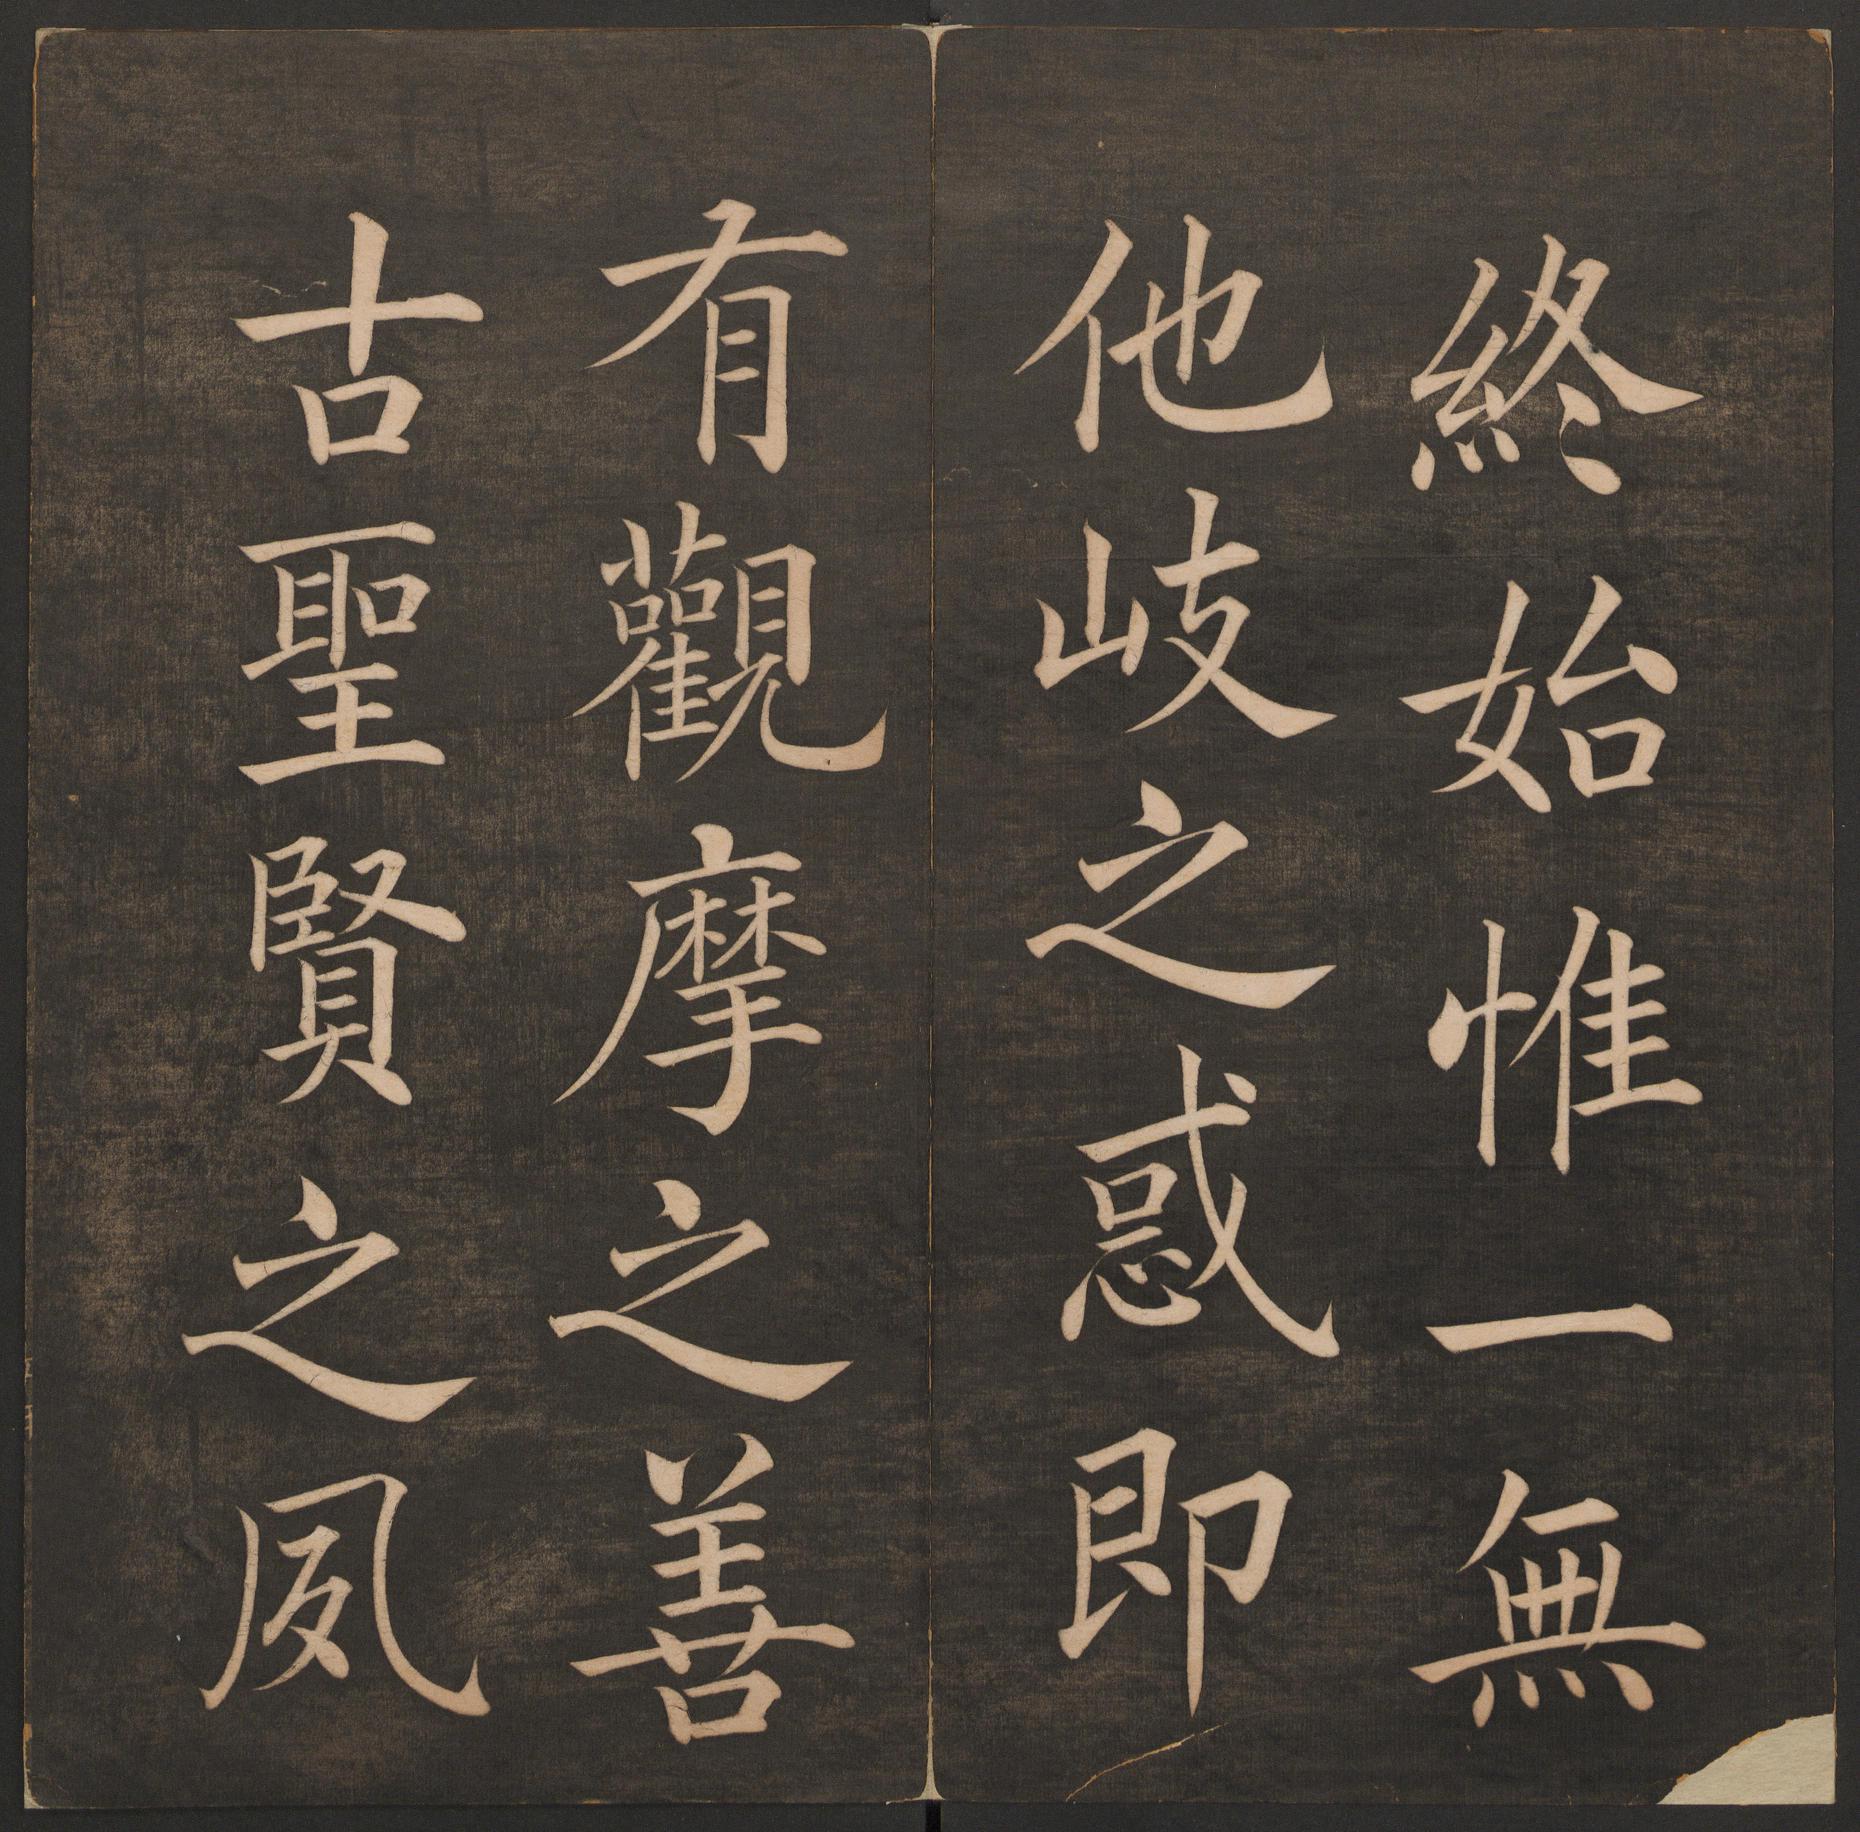 終始惟一無
他岐之惑即
有觀摩之善
古聖賢之夙